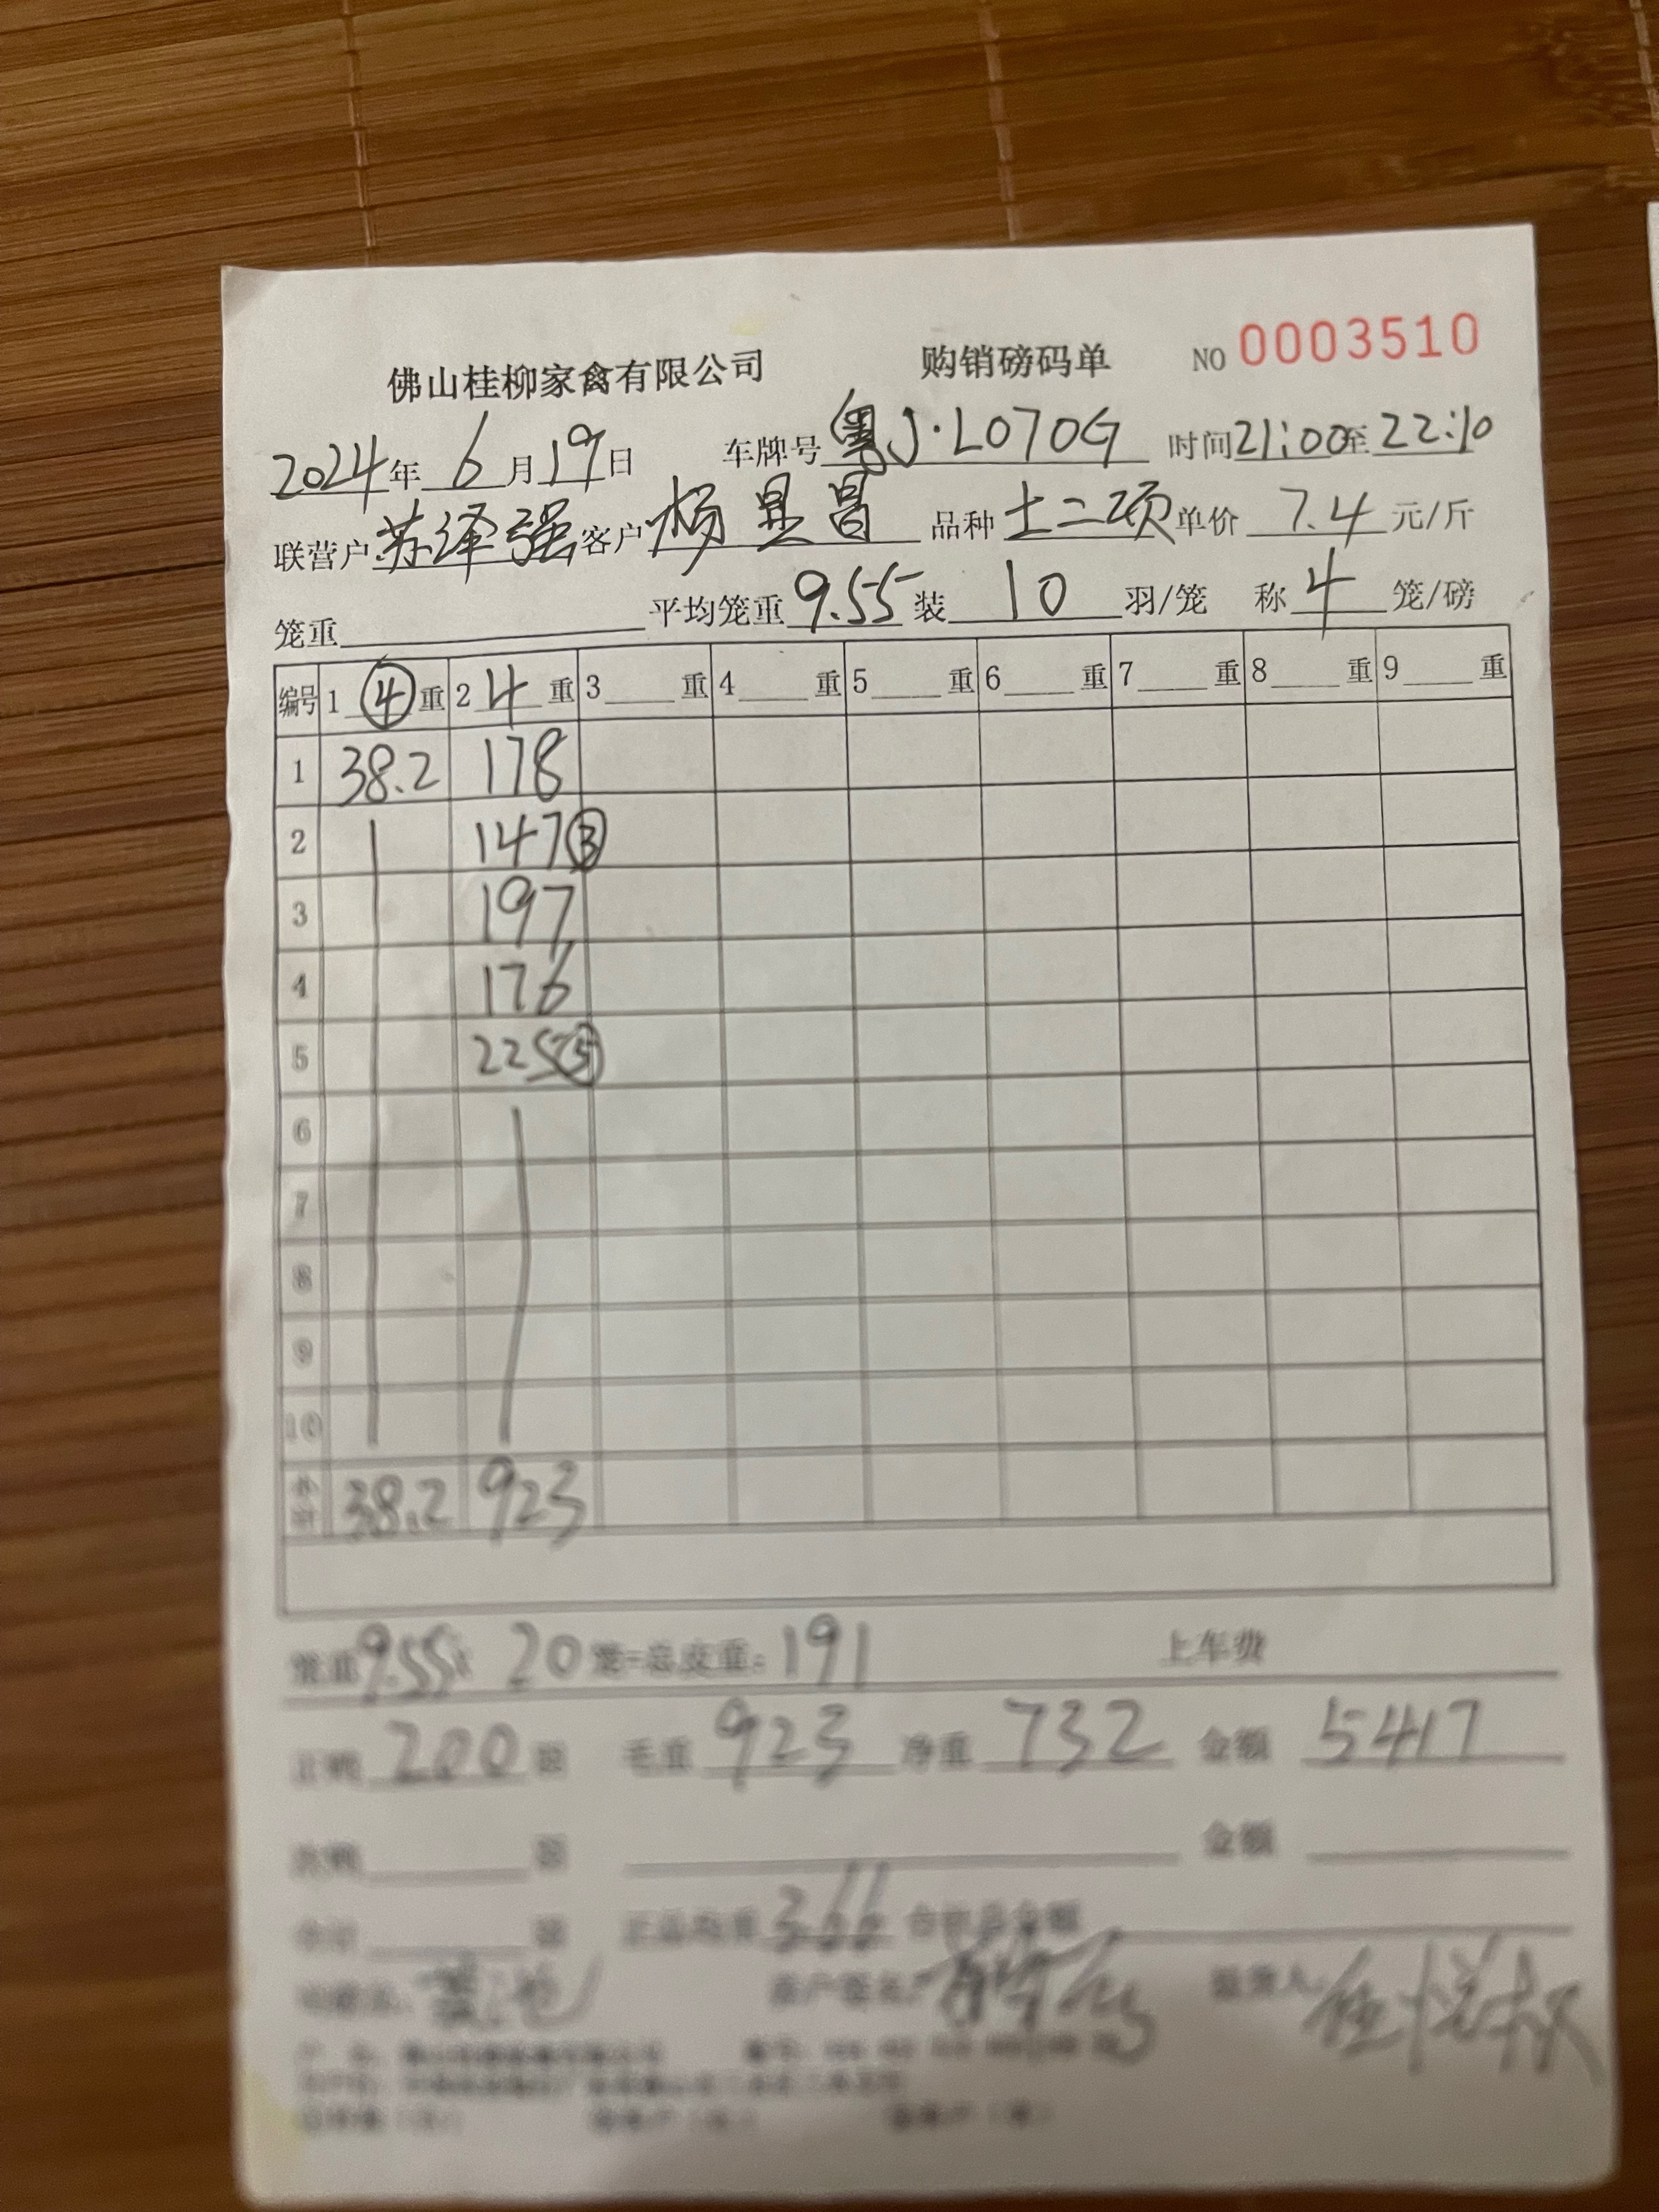 佛山桂柳家禽有限公司 购销磅码单 NO 0003510
2024年 6 月 19 日 车牌号 粤J·L070G 时间 21:00 至 22:10
联营户 苏泽强 客户 杨显昌 品种 土二项 单价 7.4 元/斤
笼重 平均笼重 9.55 装 10 羽/笼 称 4 笼/磅
编号 1 ④ 重 2 4 重 3 重 4 重 5 重 6 重 7 重 8 重 9 重
1 38.2 178
2 147 ③
3 197
4 176
5 225 ⑤
6
7
8
9
10
小计 38.2 923
笼重 9.55 × 20 笼=总皮重: 191 上车费
正鸭 200 羽 毛重 923 净重 732 金额 5417
次鸭 羽 金额
合计 羽 正品均重 3.66 合计总金额